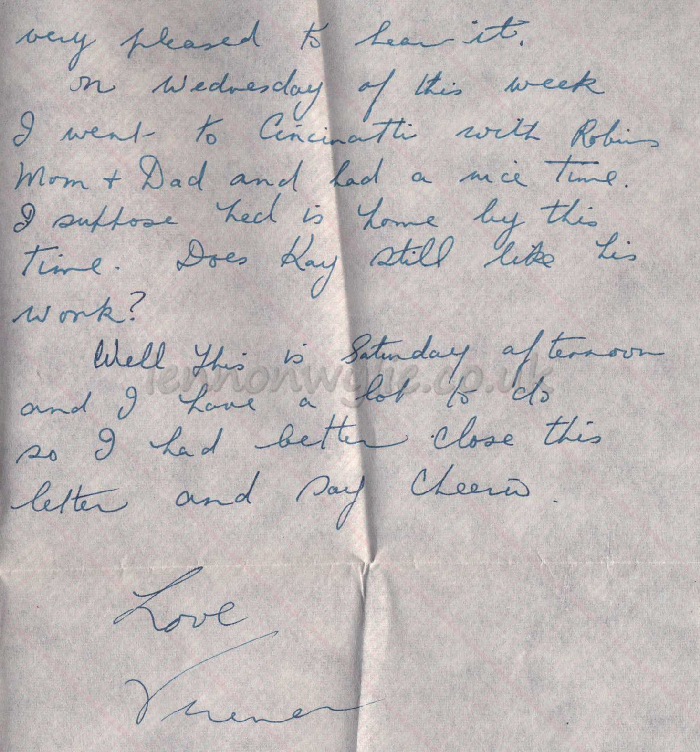 very pleased to hear it.
on Wednesday of this week
I went to Cincinatti with Robins
Mom + Dad and had a nice time.
I suppose Ned is home by this
time. Does Kay still like his
work?
Well this is Saturday afternoon
lennonwylie.co.uk
and I have a lot to do
so I had better close this
letter and say Cheerio.
Love